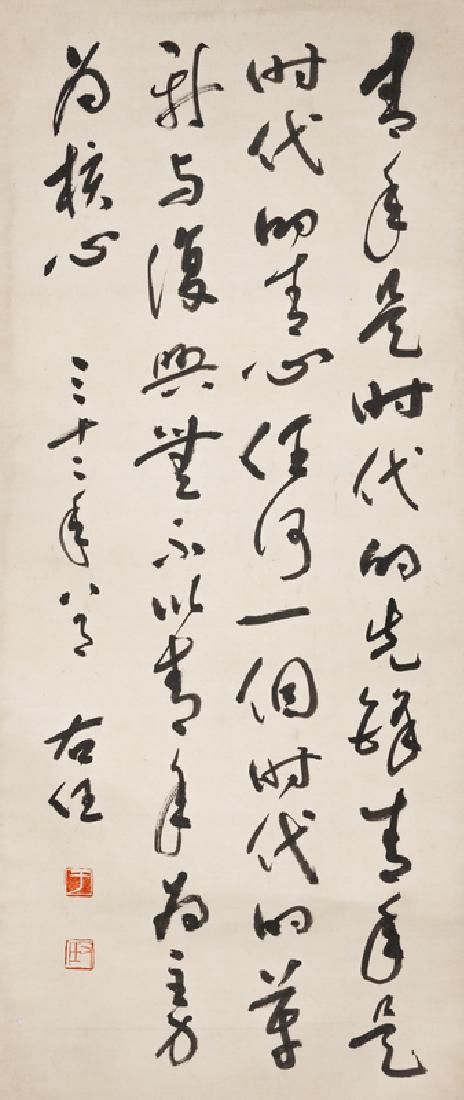 青年是时代的先鋒青年是
时代的重心任何一個时代的革
新与復興無不以青年为主力
为核心
三十二年八月
右任